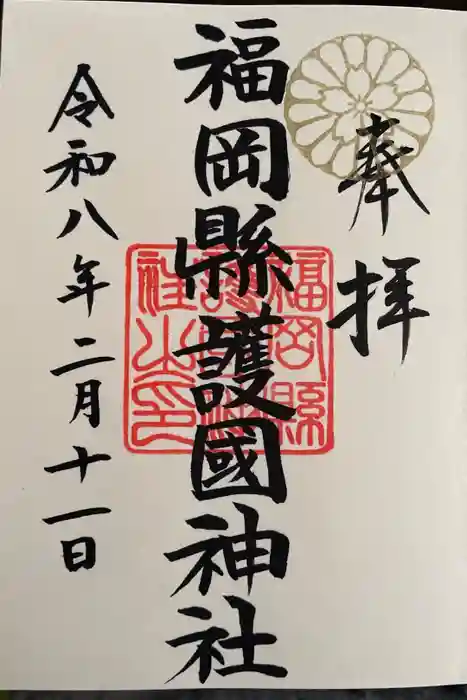 奉拝
福岡縣護國神社
令和八年二月十一日
福岡縣護國神社之印